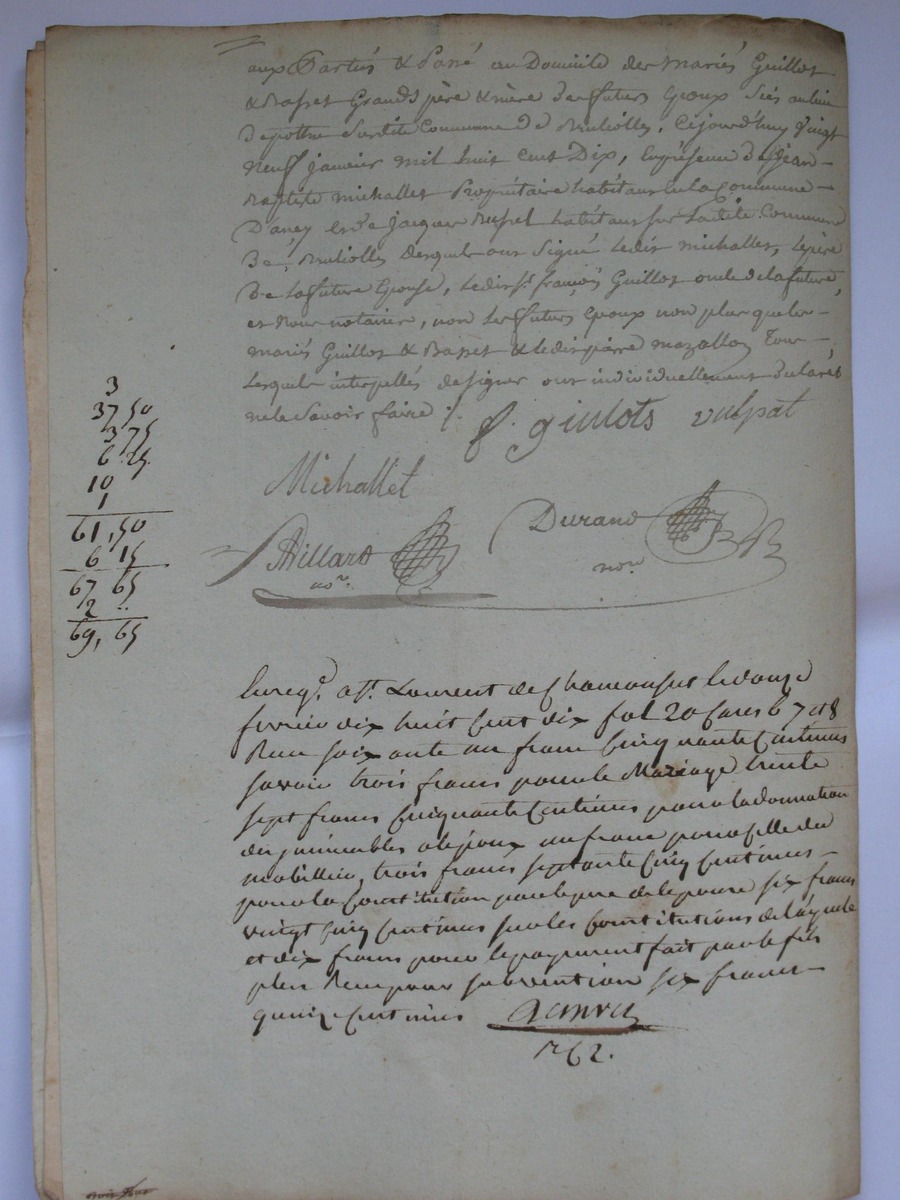 aux Parties & Passé au Domicile des mariés Guillot
& Basset Grands père & mère des futurs Epoux Sis au lieu
de pottu Susdite Commune de Brulioles, Cejourd'huy vingt
neuf janvier mil huit cent Dix, En présence de Sr jean
Baptiste michallet Propriétaire habitant en la Commune
D'ancy et de jacques Russel habitant sur Ladite Commune
de Brulioles desquels ont Signé Ledit michallet, Le père
de La future Epouse, Ledit Sr. françois Guillot oncle de la future,
et Nous notaires, non Les futurs Epoux non plus que les
mariés Guillot & Basset & ledit pierre mazallon Tous
Lesquels interpellés de signer ont individuellement declarés
ne le Savoir faire ./.
f. guillots vulpat
Michallet
Durand
nore
Billard
nore
3
37 50
3 75
6 25
10
1
61, 50
6 15
67 65
2 ..
69, 65
Enregé. a St. Laurent de Chamousset le douze
fevrier dix huit cent dix fol 20 Cases 6 7 et 8
Reçu soixante un franc Cinquante Centimes
savoir trois francs pour le Mariage trente
sept francs Cinquante Centimes pour la donnation
des jmmeubles a lepoux un franc pour celle du
mobillier, trois francs septante Cinq Centimes
pour la Constitution par le pere de lepouse six francs
vingt Cinq Centimes sur les Constitutions de l'ayeule
et dix francs pour le payement fait par le fils
plus Reçu pour subvention six francs
quinze Centimes
162.